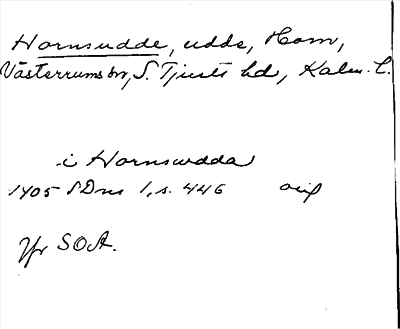 Hornsudde, udde, Horn,
Västerrums sn, S. Tjusts hd, Kalm. l.
i Hornswdda
1405 SDns 1, s. 446 orig
Jfr SOA.